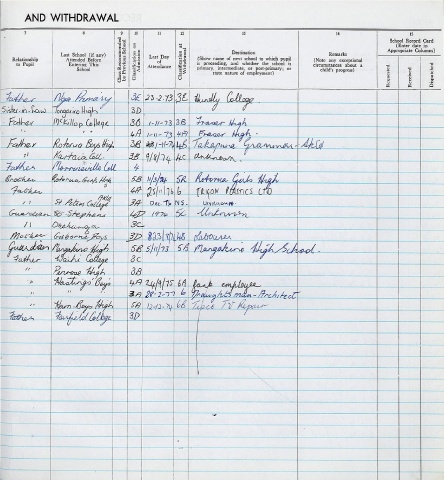 AND WITHDRAWAL
7 8 9 10 11 12 13 14 15
Relationship to Pupil
Last School (if any) Attended Before Entering This School
Classification on Admission
Last Day of Attendance
Classification at Withdrawal
Destination
(Show name of next school to which pupil is proceeding, and whether the school is primary, intermediate, or post-primary; or state nature of employment)
Remarks
(Note any exceptional circumstances about a child's progress)
School Record Card
(Enter date in Appropriate Column)
Requested
Received
Despatched
Father Ngea Primary 3E 23-2-73 3E Huntly College
Sister-in-law Tongariro High 3D
Father McKillop College 3B 1-11-73 3B Fraser High
" " 4A 1-11-73 4A Fraser High.
Father Rotorua Boys High 3B 4B Takapuna Grammar
" Coll 3B 9/8/74 4C Unknown.
Father Morrinsville Coll 4
Brother Rotorua Girls High 5B 5A Rotorua Girls High
Father 4A 25/11/76 6 PLASTICS LTD
" St Peters College 3A Dec 74 N.S. Unknown
Guardian St. Stephens 4D 1974 5C Unknown
" Onehunga 3C
Mother Gisborne Boys 3D 4B Labourer
Guardian Mangakino High 5B 5/11/73 5B Mangakino High School.
Father Waihi College 3C
" Penrose High 3B
" Hastings Boys 4A 24/9/75 6A Bank employee
" " 3A 28-2-77 6 Draughtsman-Architect
" Boys High 5A 12-12-74 6B TV Repair
Father Fairfield College 3D